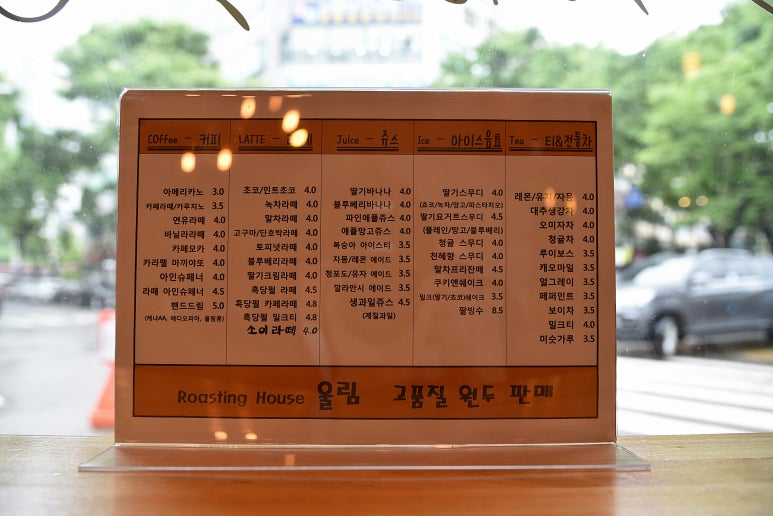 COffee - 커피
아메리카노 3.0
카페라떼/카푸치노 3.5
연유라떼 4.0
바닐라라떼 4.0
카페모카 4.0
카라멜 마끼야또 4.0
아인슈페너 4.0
라떼 아인슈페너 4.5
핸드드립 5.0
(케냐AA, 에디오피아, 울림통)
LATTE -
초코/민트초코 4.0
녹차라떼 4.0
말차라떼 4.0
고구마/단호박라떼 4.0
토피넛라떼 4.0
블루베리라떼 4.0
딸기크림라떼 4.0
흑당펄 라떼 4.5
흑당펄 카페라떼 4.8
흑당펄 밀크티 4.8
소이라떼 4.0
Juice - 쥬스
딸기바나나 4.0
블루베리바나나 4.0
파인애플쥬스 4.0
애플망고쥬스 4.0
복숭아 아이스티 3.5
자몽/레몬 에이드 3.5
청포도/유자 에이드 3.5
깔라만시 에이드 3.5
생과일쥬스 4.5
(계절과일)
Ice - 아이스음료
딸기스무디 4.0
(쵸코/녹차/망고/파스타치오)
딸기요거트스무디 4.5
(플레인/망고/블루베리)
청귤 스무디 4.0
천혜향 스무디 4.0
말차프라잔떼 4.5
쿠키앤쉐이크 4.0
밀크(딸기/쵸코)쉐이크 3.5
팥빙수 8.5
Tea - 티&전통차
레몬/유자/자몽 4.0
대추생강차 4.0
오미자차 4.0
청귤차 4.0
루이보스 3.5
캐모마일 3.5
얼그레이 3.5
페퍼민트 3.5
보이차 3.5
밀크티 4.0
미숫가루 3.5
Roasting House 울림 고품질 원두 판매